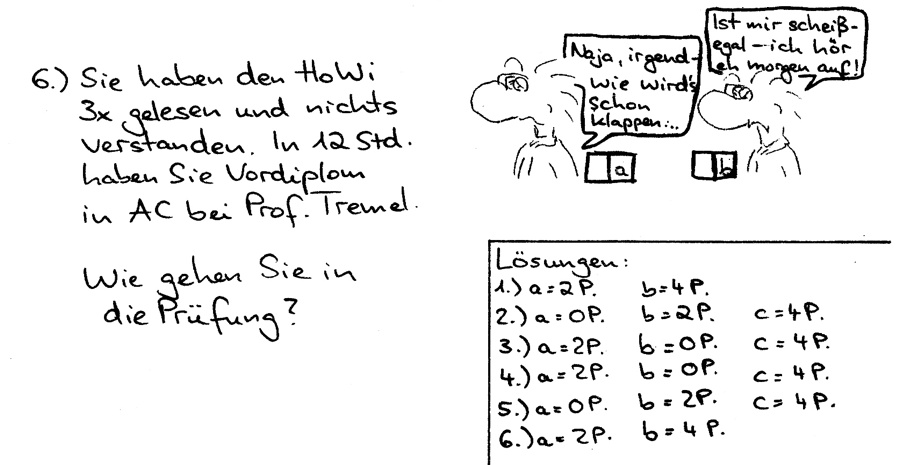 6.) Sie haben den HoWi
3x gelesen und nichts
verstanden. In 12 Std.
haben Sie Vordiplom
in AC bei Prof. Tremel.
Wie gehen Sie in
die Prüfung?
Naja, irgend-
wie wird's
schon
klappen...
a
Ist mir scheiß-
egal – ich hör
eh morgen auf!
b
Lösungen:
1.) a=2P. b=4P.
2.) a=0P. b=2P. c=4P.
3.) a=2P. b=0P. c=4P.
4.) a=2P. b=0P. c=4P.
5.) a=0P. b=2P. c=4P.
6.) a=2P. b=4P.